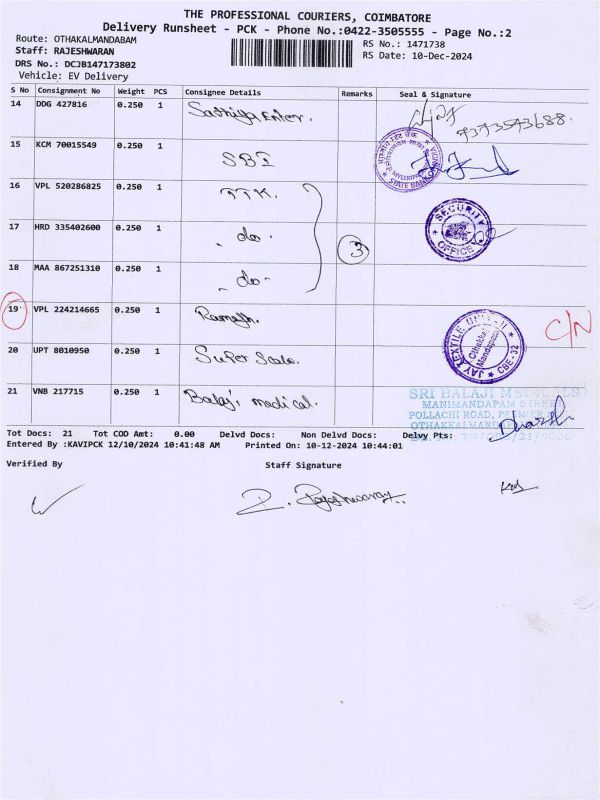 THE PROFESSIONAL COURIERS, COIMBATORE
Delivery Runsheet - PCK - Phone No.:0422-3505555 - Page No.:2
Route: OTHAKALMANDABAM
Staff: RAJESHWARAN
RS No.: 1471738
DRS No.: DCJB147173802
RS Date: 10-Dec-2024
Vehicle: EV Delivery
S No Consignment No Weight PCS Consignee Details Remarks Seal & Signature
14 DDG 427816 0.250 1 Sathiya Enter. 9393593688
15 KCM 70015549 0.250 1 SBI STATE BANK
16 VPL 520286825 0.250 1 TTK. SECURITY OFFICE
17 HRD 335402600 0.250 1 - do - 3
18 MAA 867251310 0.250 1 - do -
19 VPL 224214665 0.250 1 Ramesh. C/N
20 UPT 8010950 0.250 1 Super Scale. JAY TEXTILE Othakkal Mandapam CBE-32
21 VNB 217715 0.250 1 Balaji medical. SRI BALAJI MEDICALS
MANIMANDAPAM STREET
POLLACHI ROAD, PREMIER
Tot Docs: 21 Tot COD Amt: 0.00 Delvd Docs: Non Delvd Docs: Delvy Pts:
Entered By :KAVIPCK 12/10/2024 10:41:48 AM Printed On: 10-12-2024 10:44:01
Verified By Staff Signature
R. Rajeshwaran..